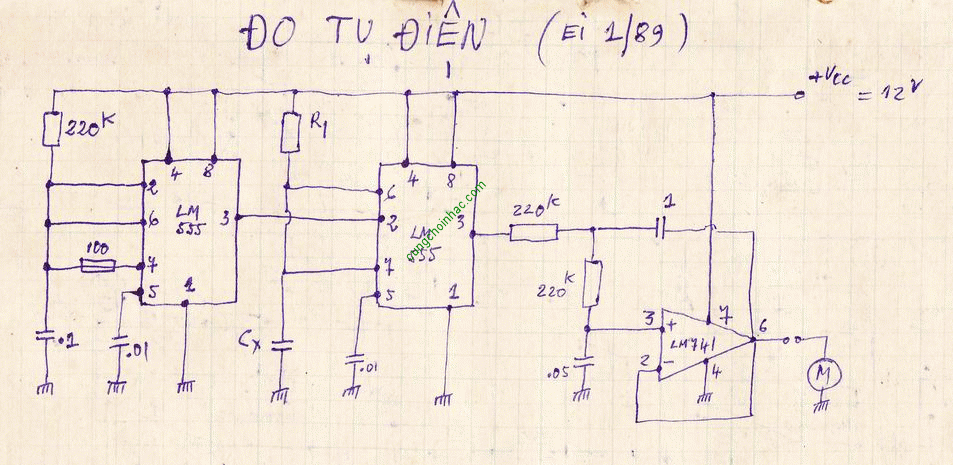 ĐO TỤ ĐIỆN (EI 1/89)
+Vcc = 12V
220K
R1
4 8
4 8
2
6
7
5
LM 555
3
1
100
.1
.01
6
2
7
5
LM 555
3
1
Cx
.01
dungchoinhac.com
220K
1
220K
.05
3 +
2 -
LM741
7
6
4
M